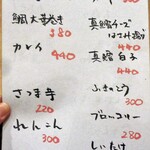 鯛大葉巻き
380
カレイ
440
さつま芋
220
れんこん
300
真鱈チーズ
はさみ揚
440
真鱈白子
440
ふきのとう
300
ブロッコリー
280
しいたけ